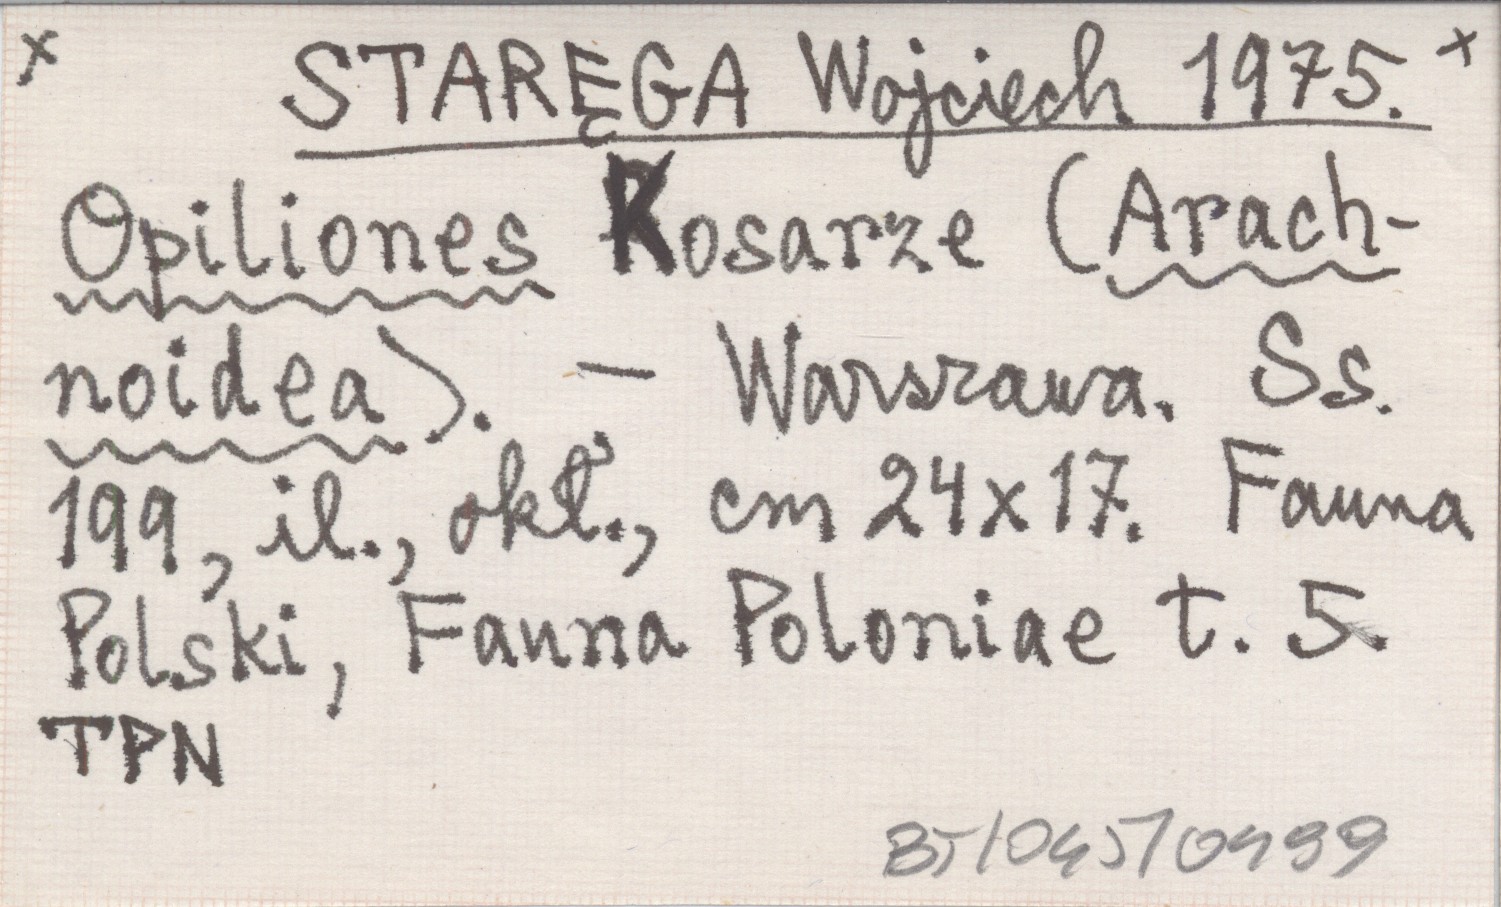 x STARĘGA Wojciech 1975. x
Opiliones Kosarze (Arach-
noidea). — Warszawa. Ss.
199, il., okł., cm 24x17. Fauna
Polski, Fauna Poloniae t. 5.
TPN